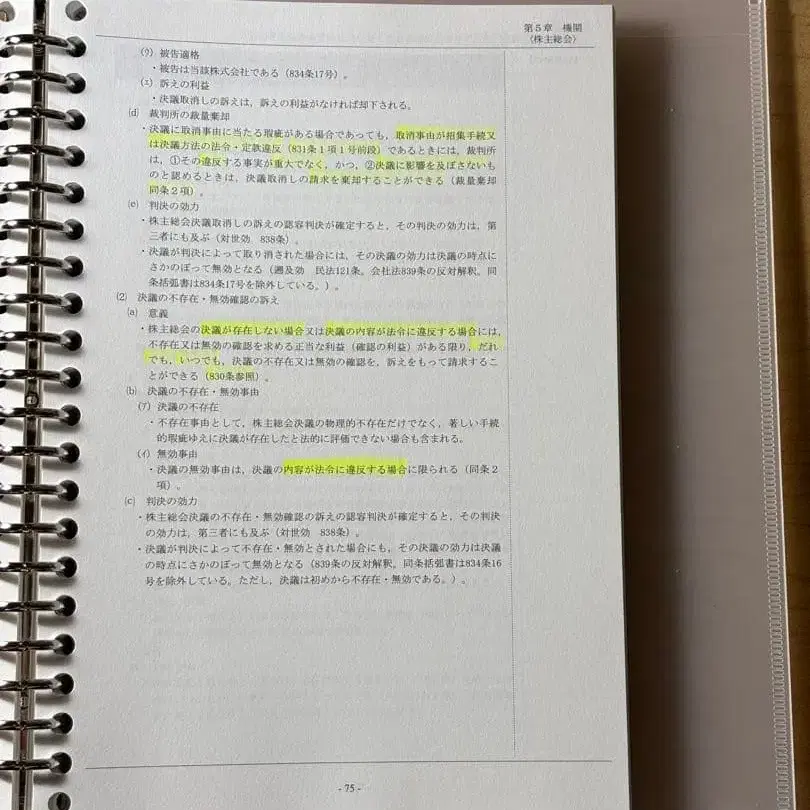 第5章 機関
〈株主総会〉
(ｳ) 被告適格
・被告は当該株式会社である（834条17号）。
(ｴ) 訴えの利益
・決議取消しの訴えは，訴えの利益がなければ却下される。
(d) 裁判所の裁量棄却
・決議に取消事由に当たる瑕疵がある場合であっても，取消事由が招集手続又
は決議方法の法令・定款違反（831条1項1号前段）であるときには，裁判所
は，①その違反する事実が重大でなく，かつ，②決議に影響を及ぼさないも
のと認めるときは，決議取消しの請求を棄却することができる（裁量棄却
同条2項）。
(e) 判決の効力
・株主総会決議取消しの訴えの認容判決が確定すると，その判決の効力は，第
三者にも及ぶ（対世効 838条）。
・決議が判決によって取り消された場合には，その決議の効力は決議の時点に
さかのぼって無効となる（遡及効 民法121条。会社法839条の反対解釈。同
条括弧書は834条17号を除外している。）。
(2) 決議の不存在・無効確認の訴え
(a) 意義
・株主総会の決議が存在しない場合又は決議の内容が法令に違反する場合には，
不存在又は無効の確認を求める正当な利益（確認の利益）がある限り，だれ
でも，いつでも，決議の不存在又は無効の確認を，訴えをもって請求するこ
とができる（830条参照）。
(b) 決議の不存在・無効事由
(ｱ) 決議の不存在
・不存在事由として，株主総会決議の物理的不存在だけでなく，著しい手続
的瑕疵ゆえに決議が存在したと法的に評価できない場合も含まれる。
(ｲ) 無効事由
・決議の無効事由は，決議の内容が法令に違反する場合に限られる（同条2
項）。
(c) 判決の効力
・株主総会決議の不存在・無効確認の訴えの認容判決が確定すると，その判決
の効力は，第三者にも及ぶ（対世効 838条）。
・決議が判決によって不存在・無効とされた場合にも，その決議の効力は決議
の時点にさかのぼって無効となる（839条の反対解釈。同条括弧書は834条16
号を除外している。ただし，決議は初めから不存在・無効である。）。
- 75 -